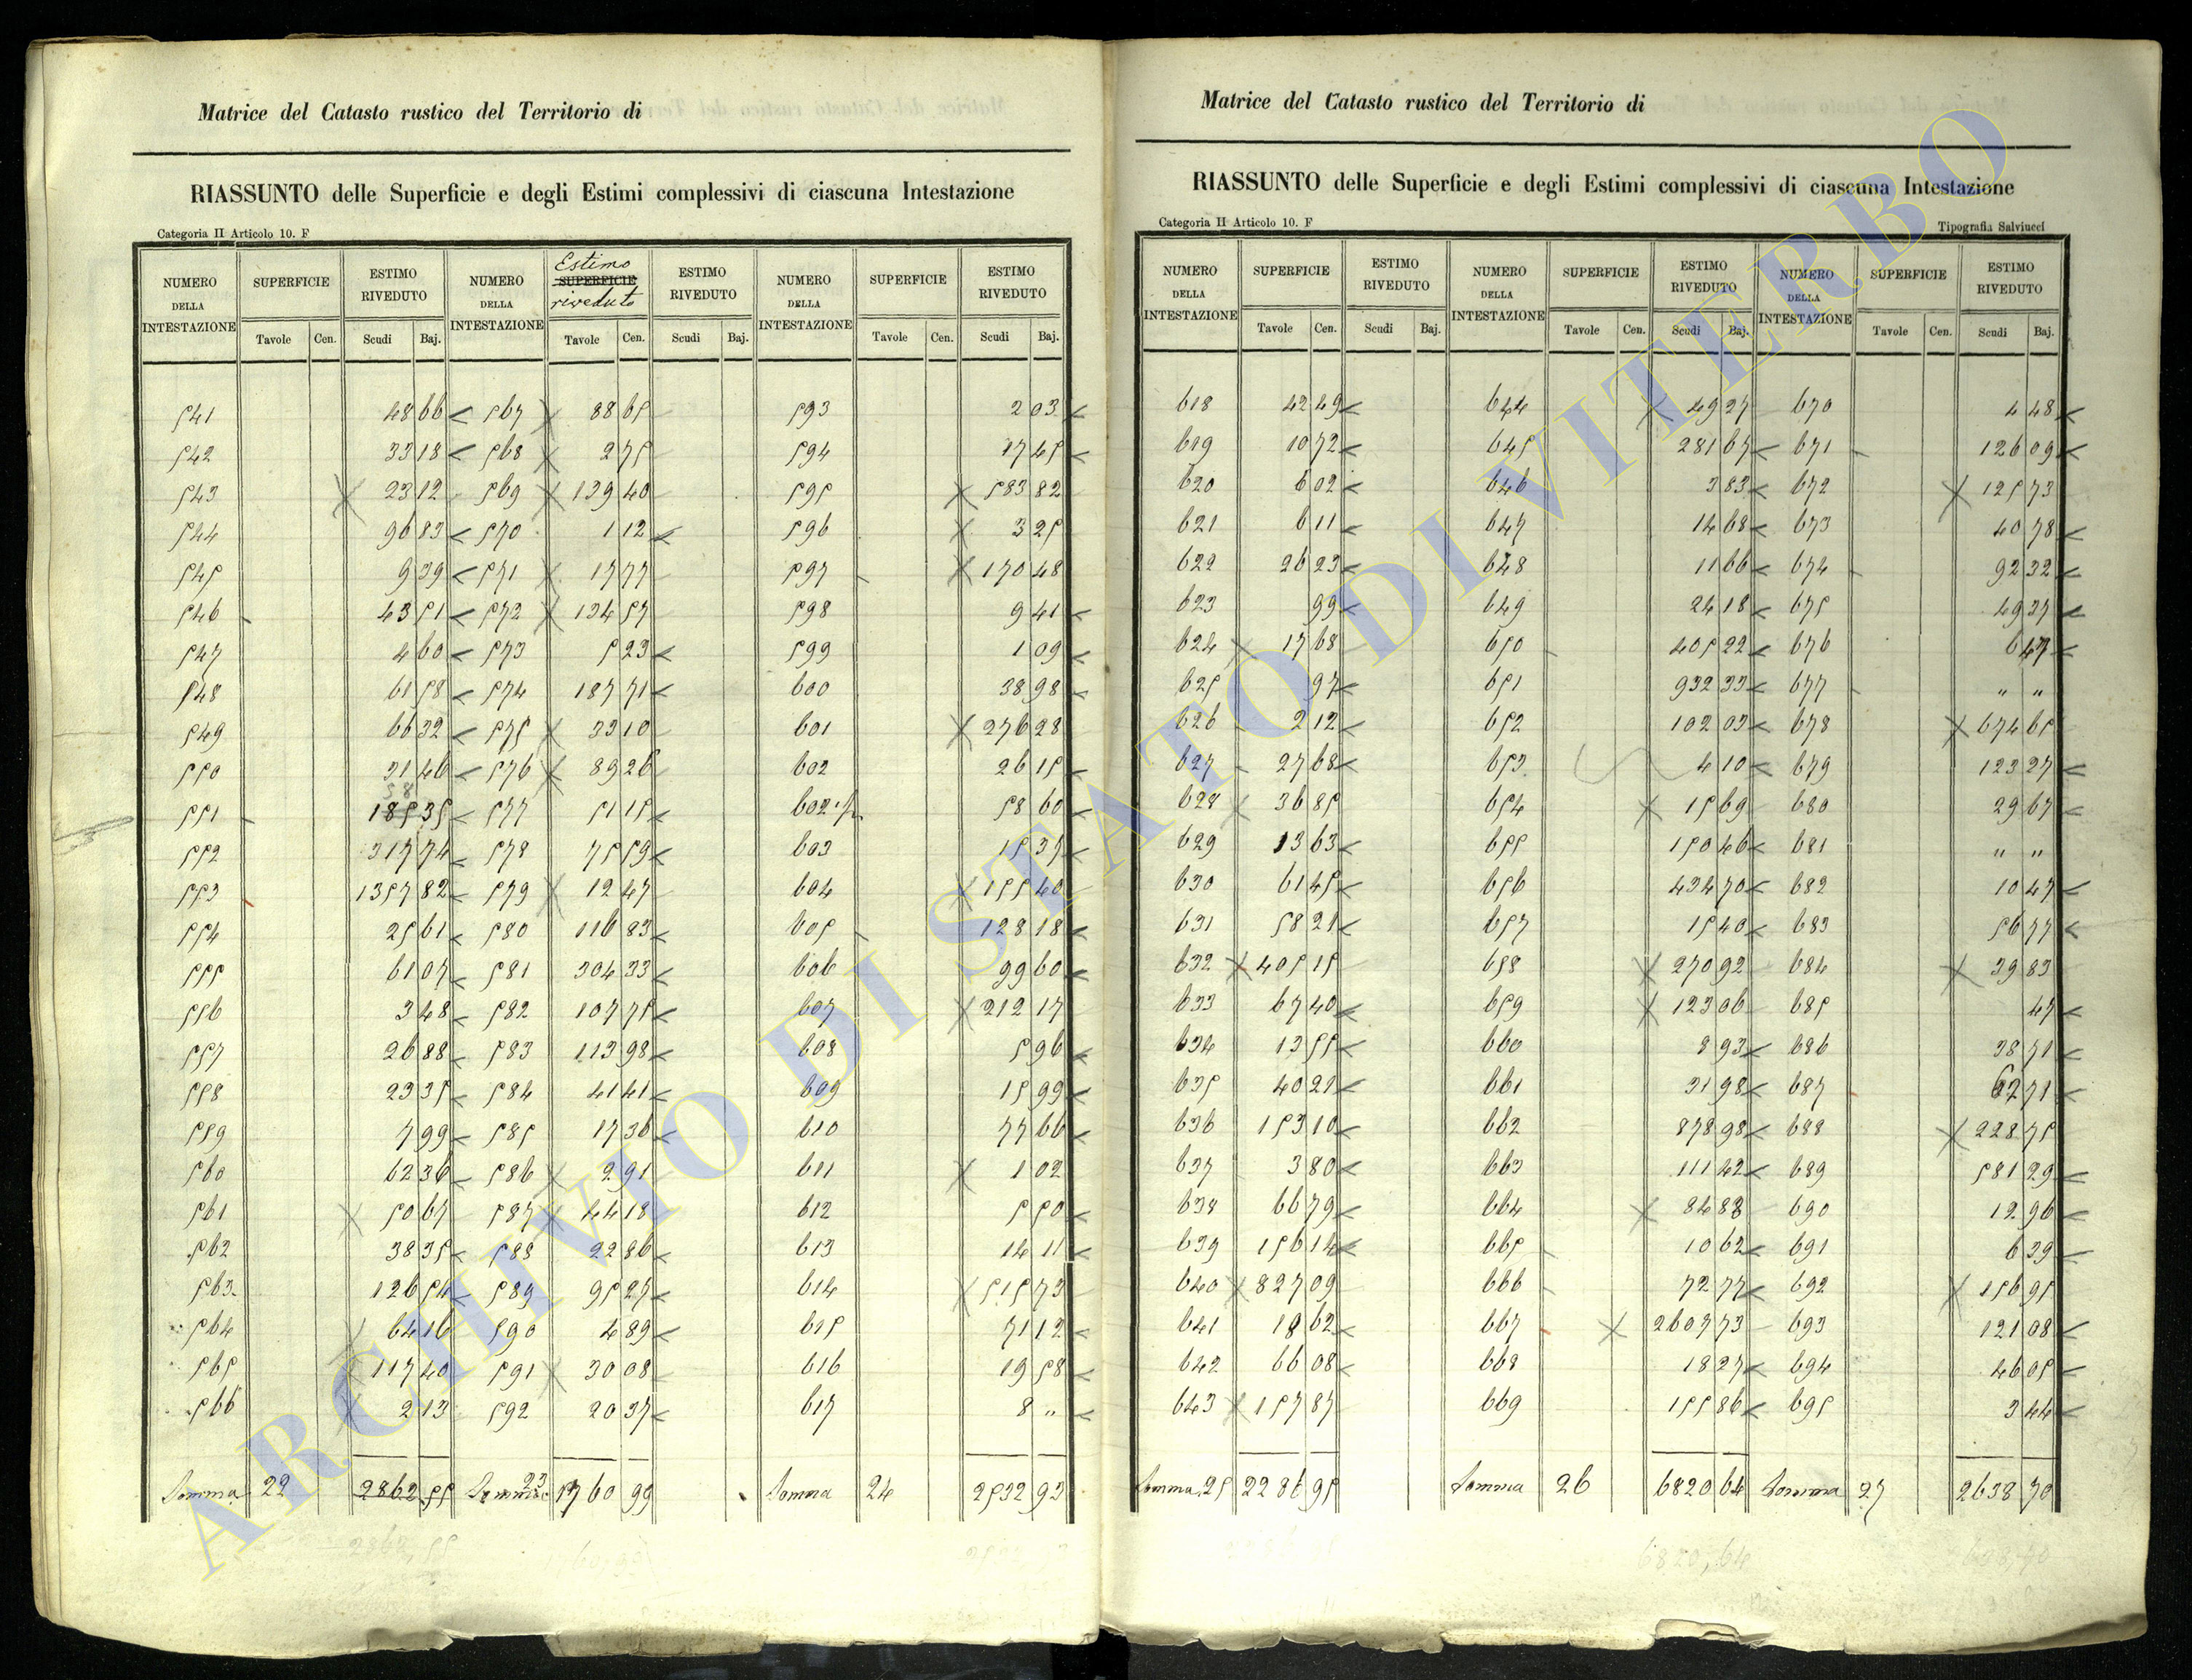 Matrice del Catasto rustico del Territorio di
RIASSUNTO delle Superficie e degli Estimi complessivi di ciascuna Intestazione
Categoria II Articolo 10. F
NUMERO DELLA INTESTAZIONE SUPERFICIE ESTIMO RIVEDUTO NUMERO DELLA INTESTAZIONE Estimo SUPERFICIE riveduto ESTIMO RIVEDUTO NUMERO DELLA INTESTAZIONE SUPERFICIE ESTIMO RIVEDUTO
Tavole Cen. Scudi Baj. Tavole Cen. Scudi Baj. Tavole Cen. Scudi Baj.
541 48 66 567 88 65 593 2 03
542 33 18 568 2 75 594 17 45
543 23 12 569 139 40 595 583 82
544 96 83 570 1 12 596 3 25
545 9 39 571 17 77 597 170 48
546 43 51 572 134 57 598 9 41
547 4 60 573 5 23 599 1 09
548 61 58 574 187 71 600 38 98
549 66 32 575 33 10 601 276 28
550 31 46 576 89 26 602 26 15
551 185 35 577 51 15 602 1/2 58 60
552 317 74 578 75 59 603 15 35
553 1357 82 579 12 47 604 155 40
554 25 61 580 116 83 605 128 18
555 61 07 581 304 33 606 99 60
556 3 48 582 107 75 607 212 17
557 26 88 583 113 98 608 5 96
558 23 35 584 41 41 609 15 99
559 7 99 585 17 36 610 77 66
560 62 36 586 2 91 611 1 02
561 50 67 587 44 18 612 5 50
562 38 35 588 22 86 613 14 11
563 126 54 589 95 27 614 515 73
564 64 16 590 4 89 615 71 12
565 117 40 591 30 08 616 19 58
566 2 13 592 20 37 617 8 "
Somma 22 2862 55 Somma 23 1760 99 Somma 24 2532 93
Matrice del Catasto rustico del Territorio di
RIASSUNTO delle Superficie e degli Estimi complessivi di ciascuna Intestazione
Categoria II Articolo 10. F Tipografia Salviucci
NUMERO DELLA INTESTAZIONE SUPERFICIE ESTIMO RIVEDUTO NUMERO DELLA INTESTAZIONE SUPERFICIE ESTIMO RIVEDUTO NUMERO DELLA INTESTAZIONE SUPERFICIE ESTIMO RIVEDUTO
Tavole Cen. Scudi Baj. Tavole Cen. Scudi Baj. Tavole Cen. Scudi Baj.
618 42 49 644 49 27 670 4 48
619 10 72 645 281 67 671 126 09
620 6 02 646 3 83 672 125 73
621 6 11 647 14 68 673 40 78
622 26 23 648 11 66 674 92 32
623 99 649 24 18 675 49 37
624 17 68 650 405 22 676 6 47
625 97 651 932 33 677 " "
626 2 12 652 102 03 678 674 65
627 27 68 653 4 10 679 123 27
628 36 85 654 15 69 680 29 67
629 13 63 655 150 46 681 " "
630 61 45 656 434 70 682 10 47
631 58 21 657 15 40 683 56 77
632 405 15 658 270 92 684 39 83
633 67 40 659 123 06 685 47
634 13 55 660 8 93 686 38 71
635 40 21 661 31 98 687 62 71
636 153 10 662 878 98 688 228 75
637 3 80 663 111 42 689 581 29
638 66 79 664 84 88 690 12 96
639 156 14 665 10 62 691 6 39
640 827 09 666 72 77 692 156 95
641 18 62 667 2607 73 693 121 08
642 66 08 668 18 27 694 46 05
643 157 87 669 155 86 695 3 44
Somma 25 2286 95 Somma 26 6820 64 Somma 27 2638 70
2862,55
6820,64
ARCHIVIO DI STATO DI VITERBO